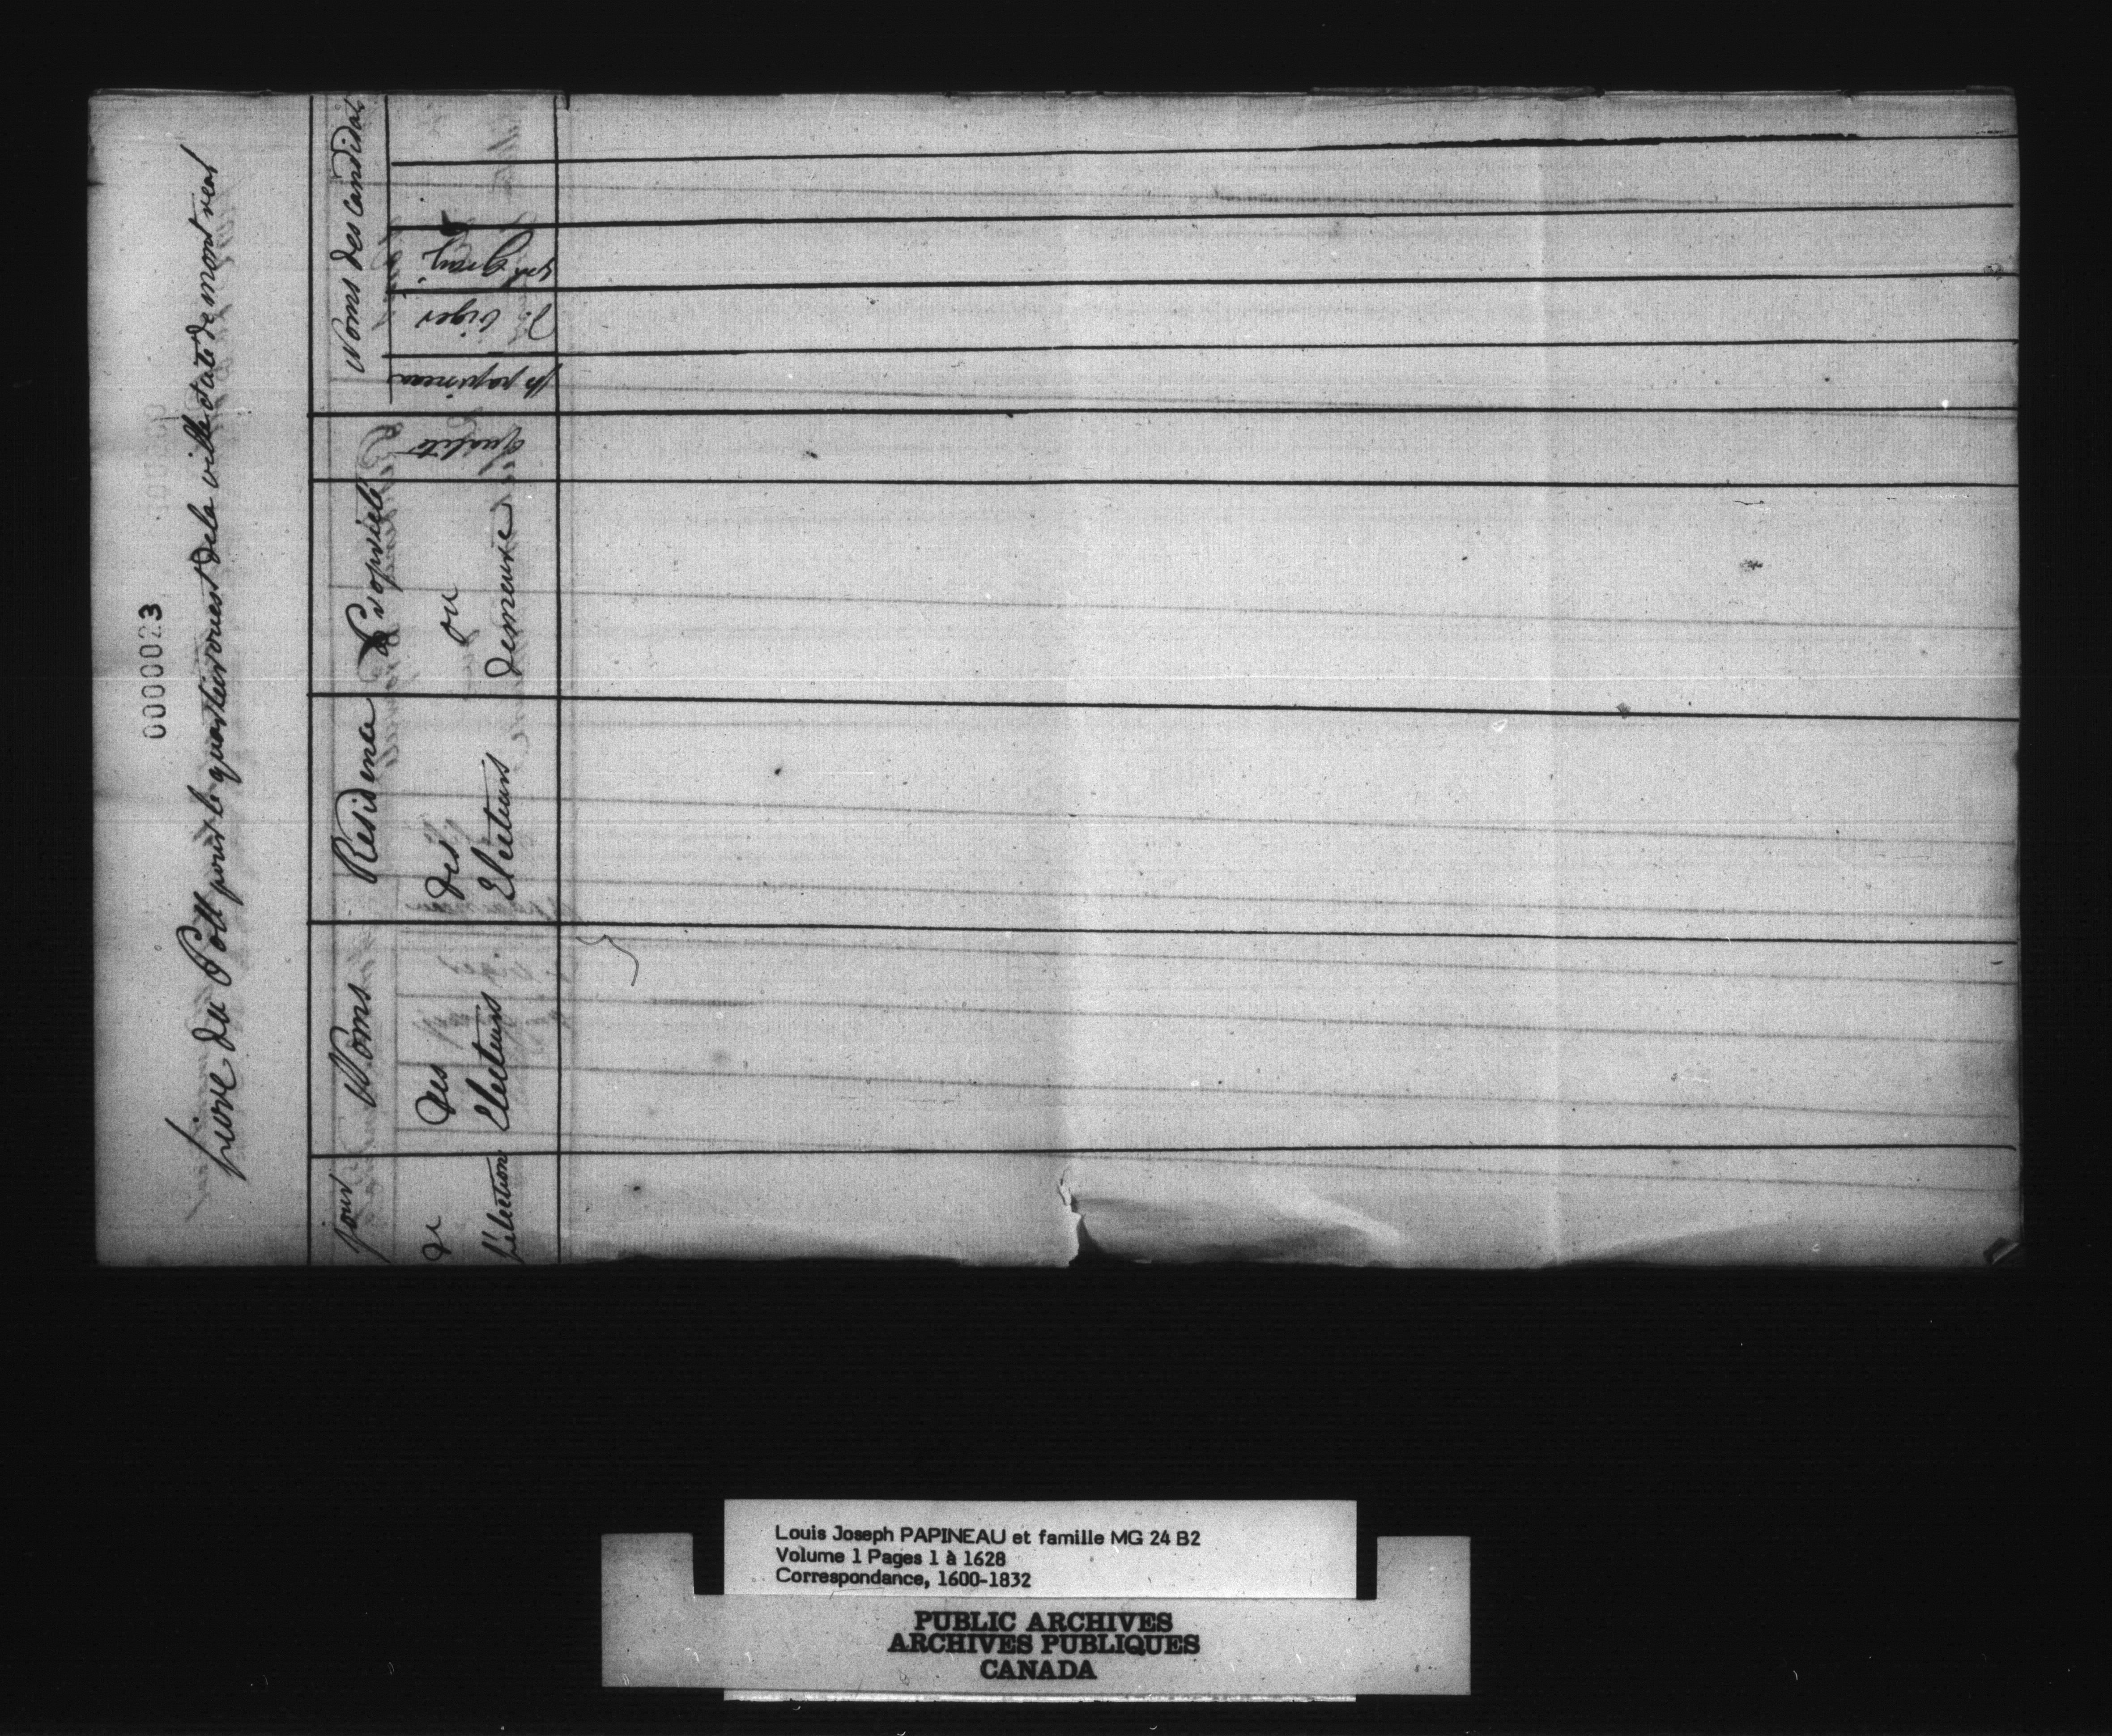 0000023
Livre du Poll pour le quartier ouest de la ville & cité de mont real
jour
de
l'élection
Noms
des
Electeurs
Residence
des
Electeurs
Proprieté
ou
demeure
qualité
Noms des Candidats
js papineau
D. viger
Gray
Louis Joseph PAPINEAU et famille MG 24 B2
Volume 1 Pages 1 à 1628
Correspondance, 1600-1832
PUBLIC ARCHIVES
ARCHIVES PUBLIQUES
CANADA